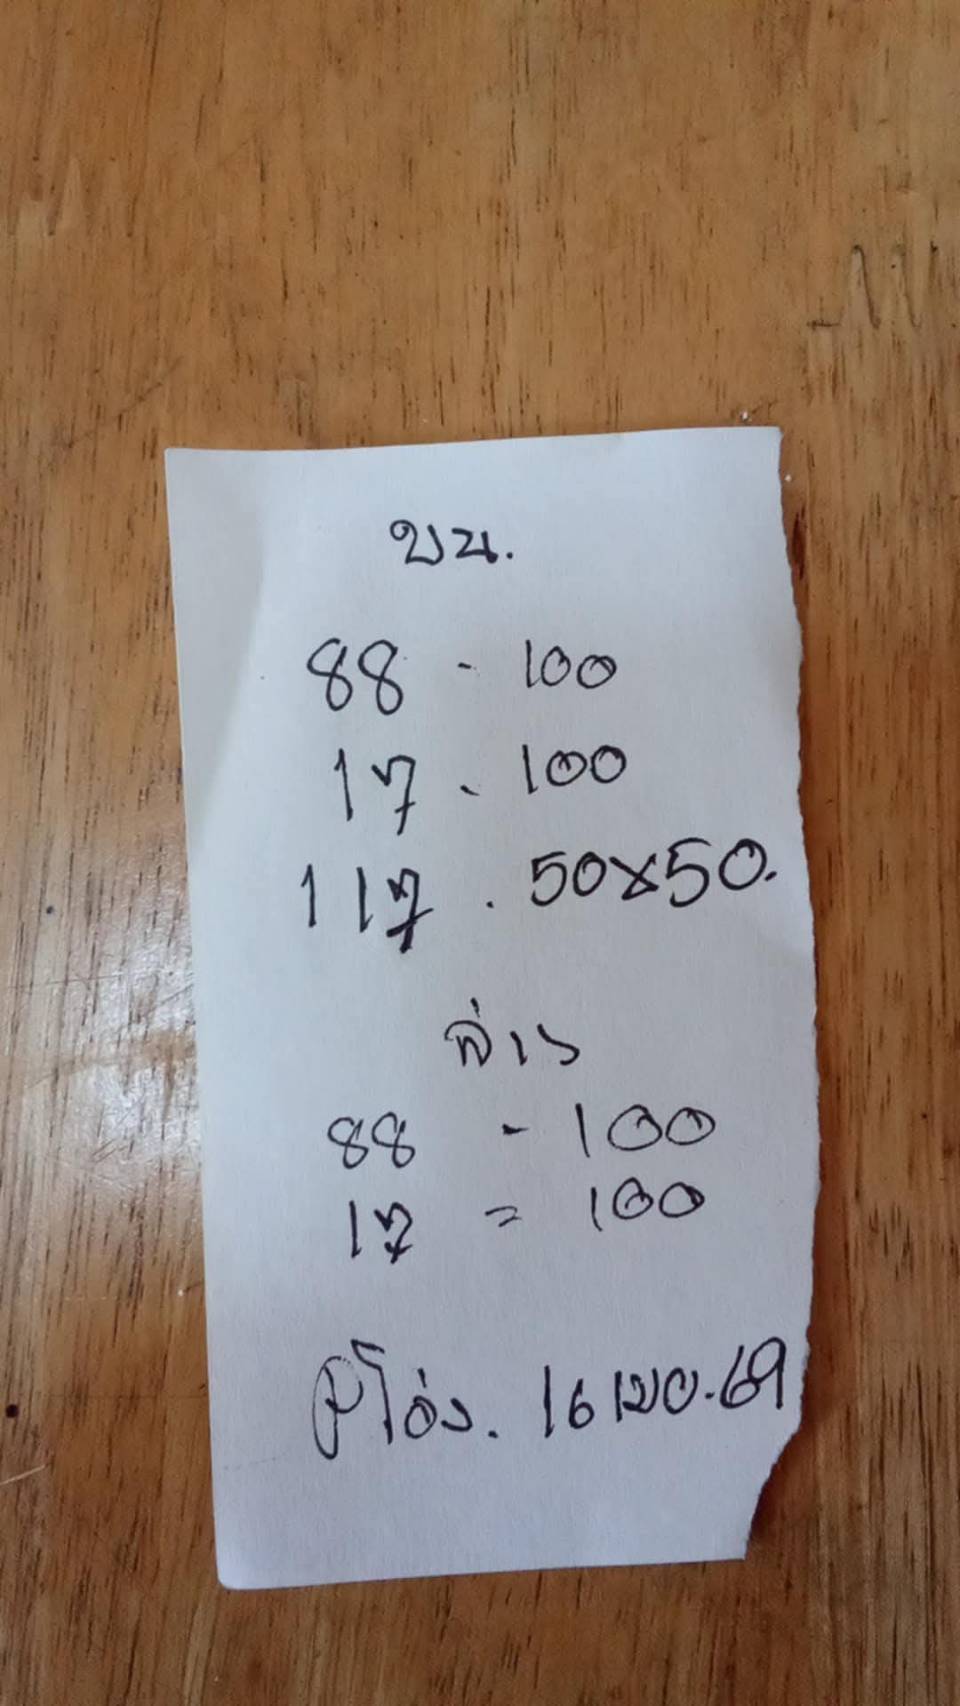 บน.
88 - 100
17 - 100
117 . 50x50.
ล่าง
88 - 100
17 = 100
โอ่ง. 16 เมย.69